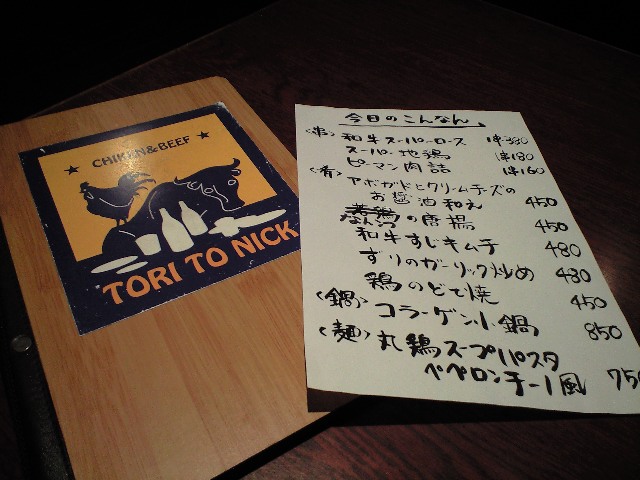 CHIKEN&BEEF
TORI TO NICK
今日のこんなん
〈串〉 和牛スーパーロース 1串380
スーパー地鶏 1串180
ピーマン肉詰 1串160
〈肴〉 アボガドとクリームチーズの
お醤油和え 450
なんこつの唐揚 450
和牛すじキムチ 480
ずりのガーリック炒め 480
鶏のどて焼 450
〈鍋〉 コラーゲン小鍋 850
〈麺〉 丸鶏スープパスタ
ペペロンチーノ風 750